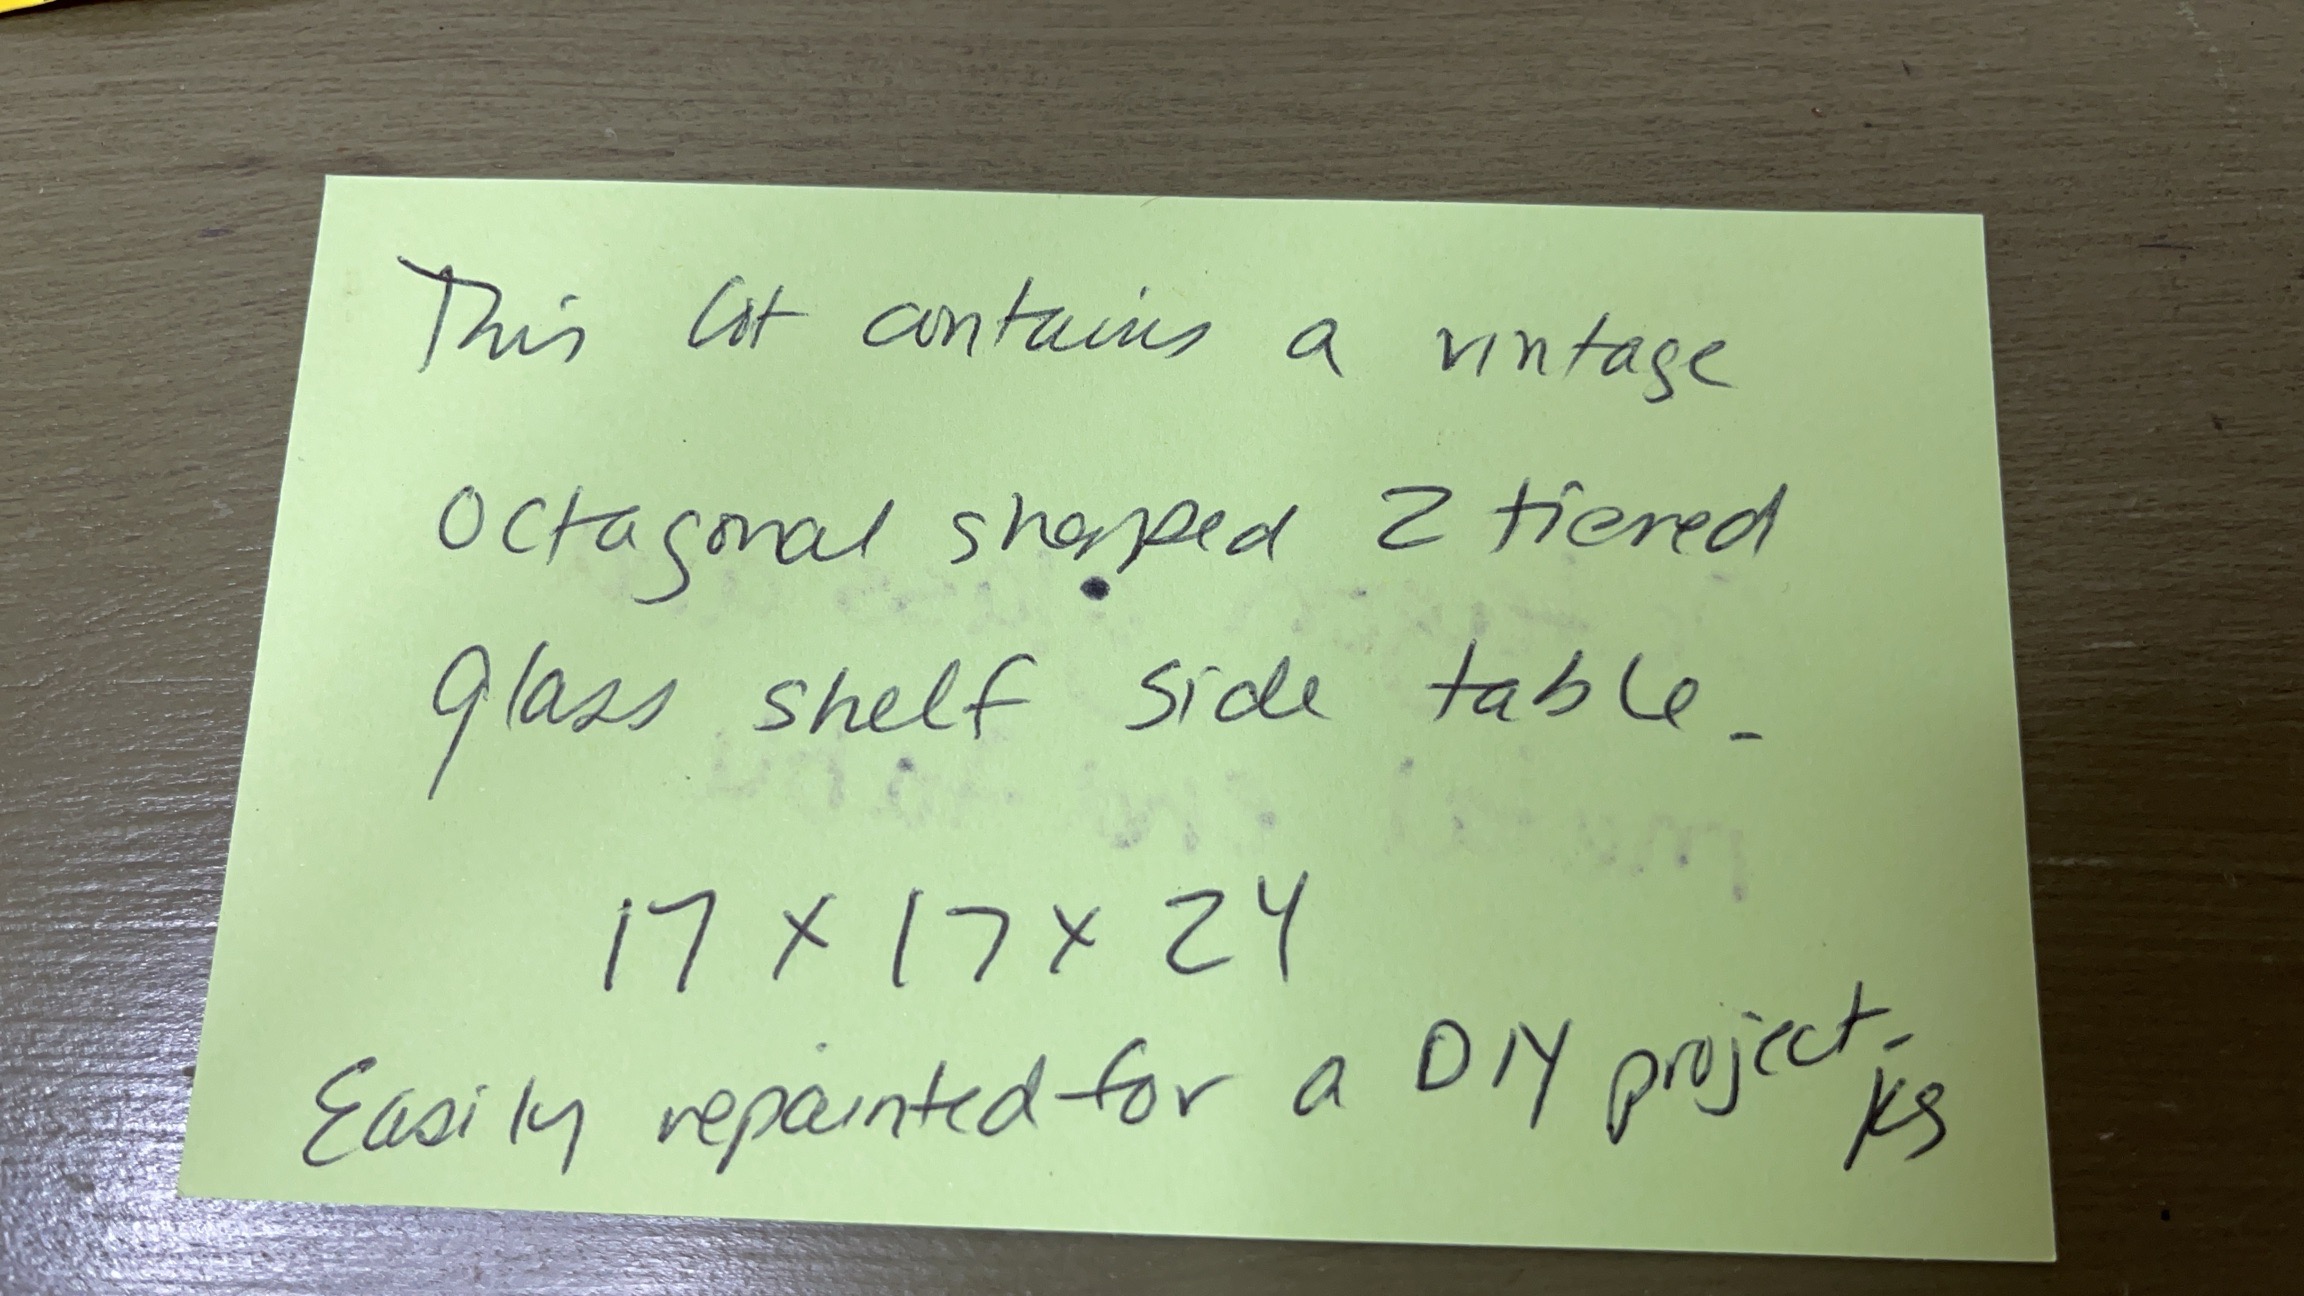 This lot contains a vintage
octagonal shaped 2 tiered
glass shelf side table.
17 x 17 x 24
Easily repainted for a DIY project.
KS